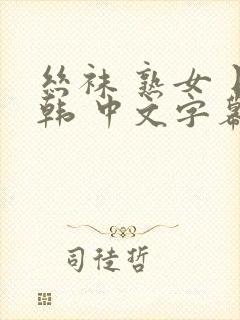 丝袜 熟女
韩 中文字幕
司徒哲